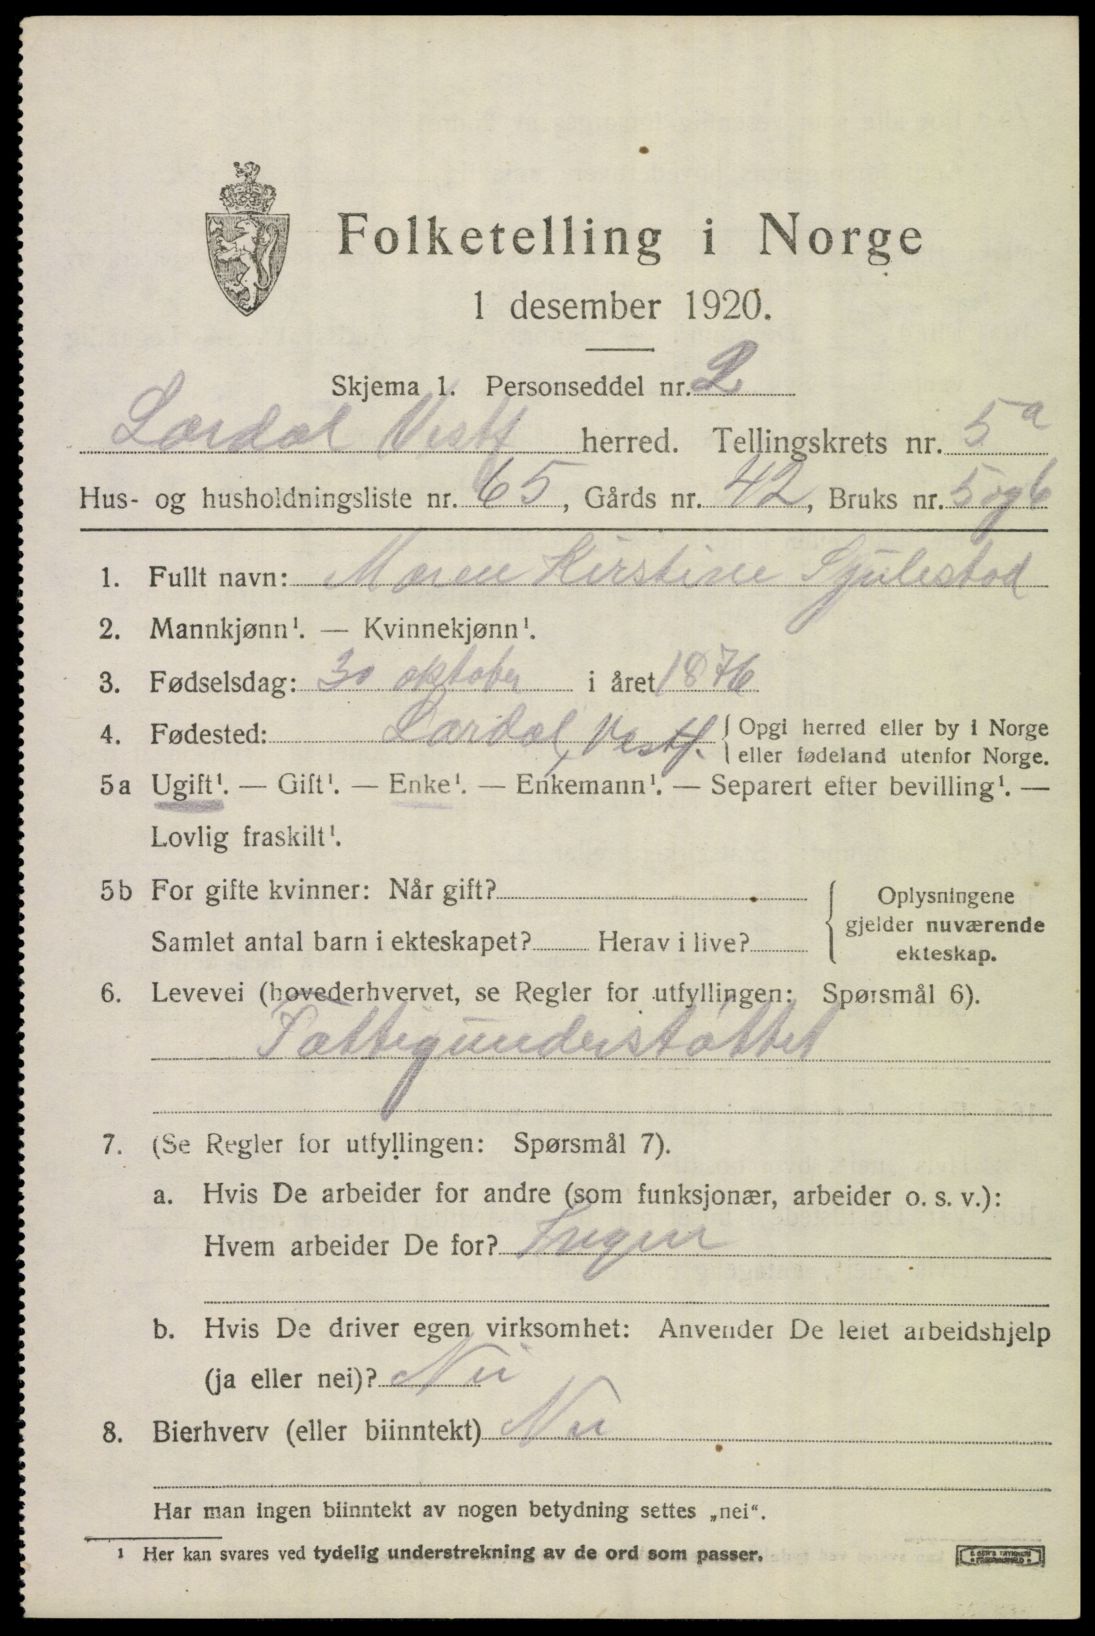 Folketelling i Norge
1 desember 1920.
Skjema 1. Personseddel nr. 2
Lardal Vestf herred. Tellingskrets nr. 5a
Hus- og husholdningsliste nr. 65, Gårds nr. 42, Bruks nr. 5 og 6
1. Fullt navn: Maren Kirstine Sjulestad
2. Mannkjønn¹. — Kvinnekjønn¹.
3. Fødselsdag: 30 oktober i året 1876
4. Fødested: Lardal, Vestf. { Opgi herred eller by i Norge
eller fødeland utenfor Norge.
5a Ugift¹. — Gift¹. — Enke¹. — Enkemann¹. — Separert efter bevilling¹. —
Lovlig fraskilt¹.
5b For gifte kvinner: Når gift?
Samlet antal barn i ekteskapet? Herav i live?
{ Oplysningene
gjelder nuværende
ekteskap.
6. Levevei (hovederhvervet, se Regler for utfyllingen: Spørsmål 6).
Fattigunderstøttet
7. (Se Regler for utfyllingen: Spørsmål 7).
a. Hvis De arbeider for andre (som funksjonær, arbeider o. s. v.):
Hvem arbeider De for? Ingen
b. Hvis De driver egen virksomhet: Anvender De leiet arbeidshjelp
(ja eller nei)? Nei
8. Bierhverv (eller biinntekt) Nei
Har man ingen biinntekt av nogen betydning settes „nei“.
¹ Her kan svares ved tydelig understrekning av de ord som passer.